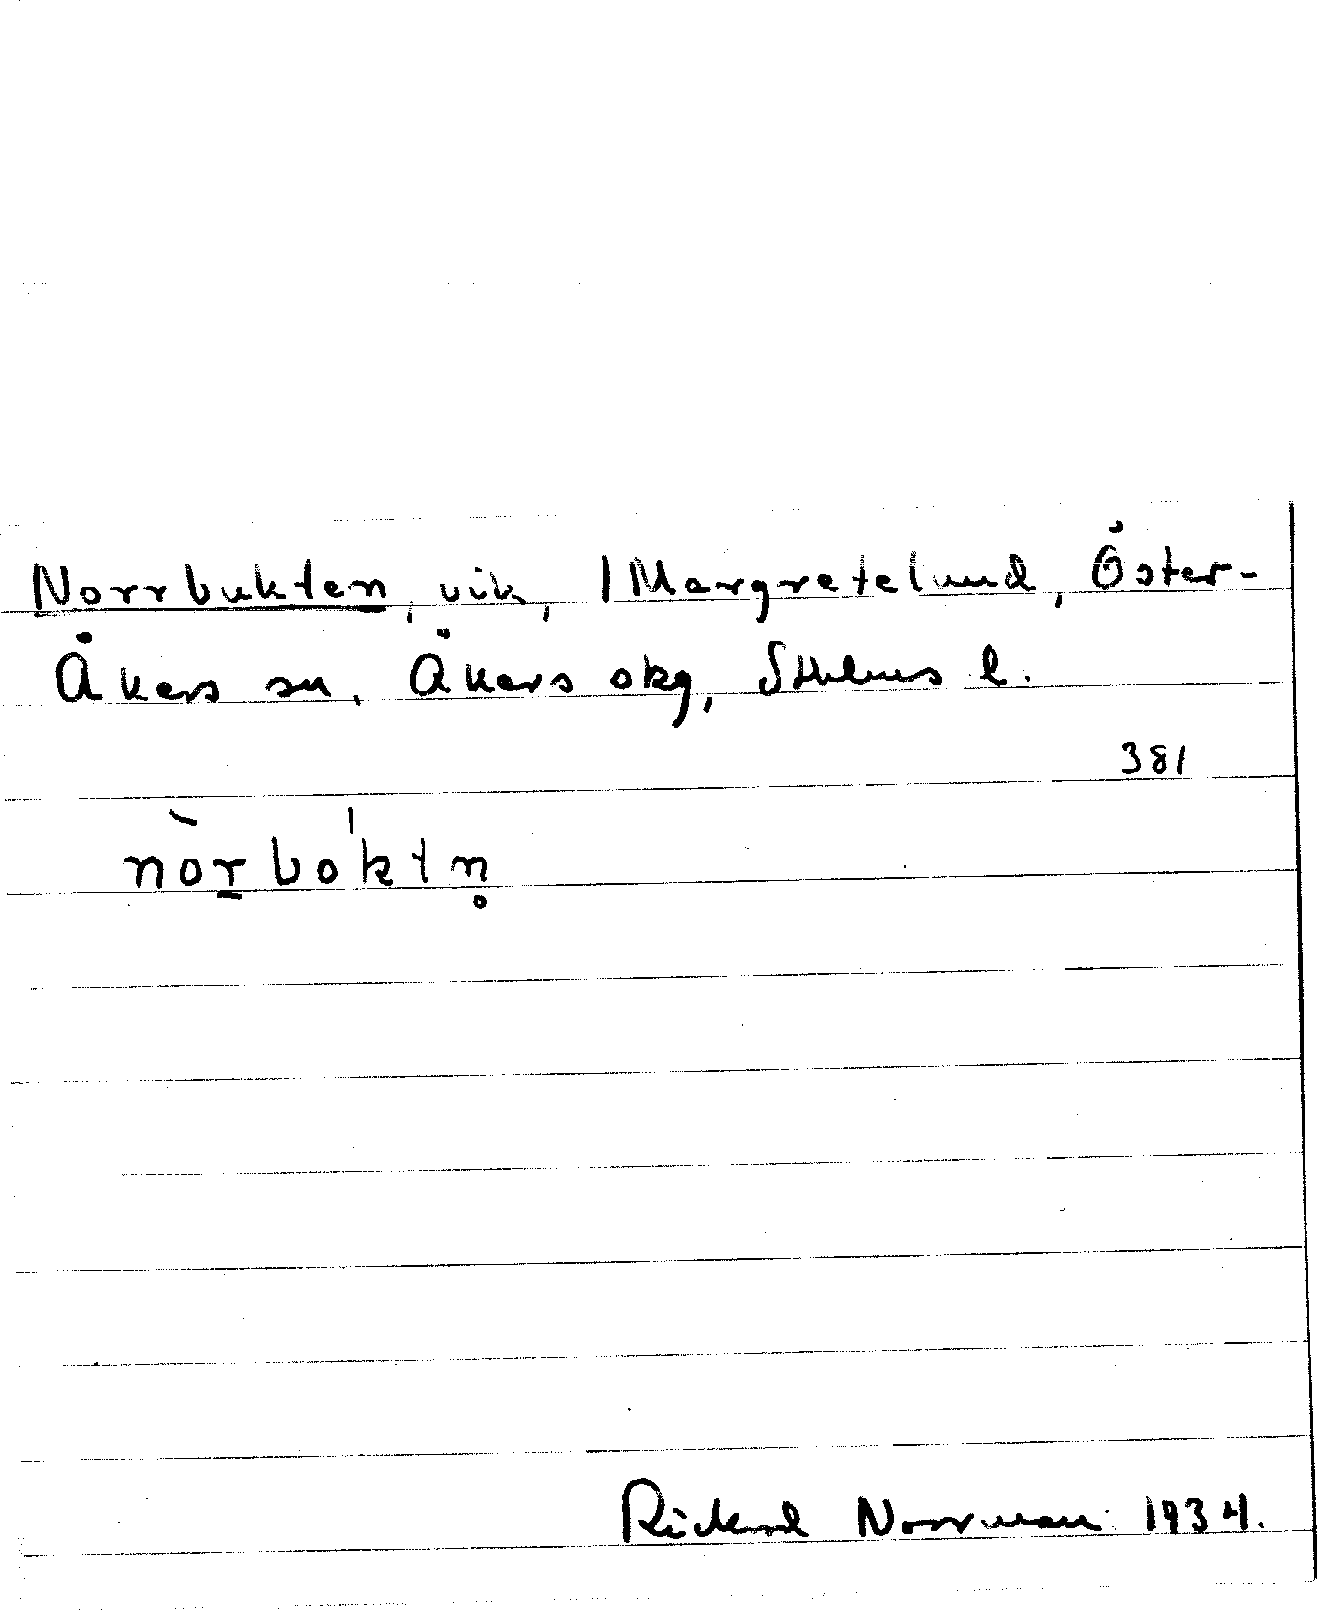 Norrbukten, vik, 1 Margretelund, Öster-
Åkers sn, Åkers skg, Sthlms l.
381
nòrbóktn̥
Rickard Norrman 1934.